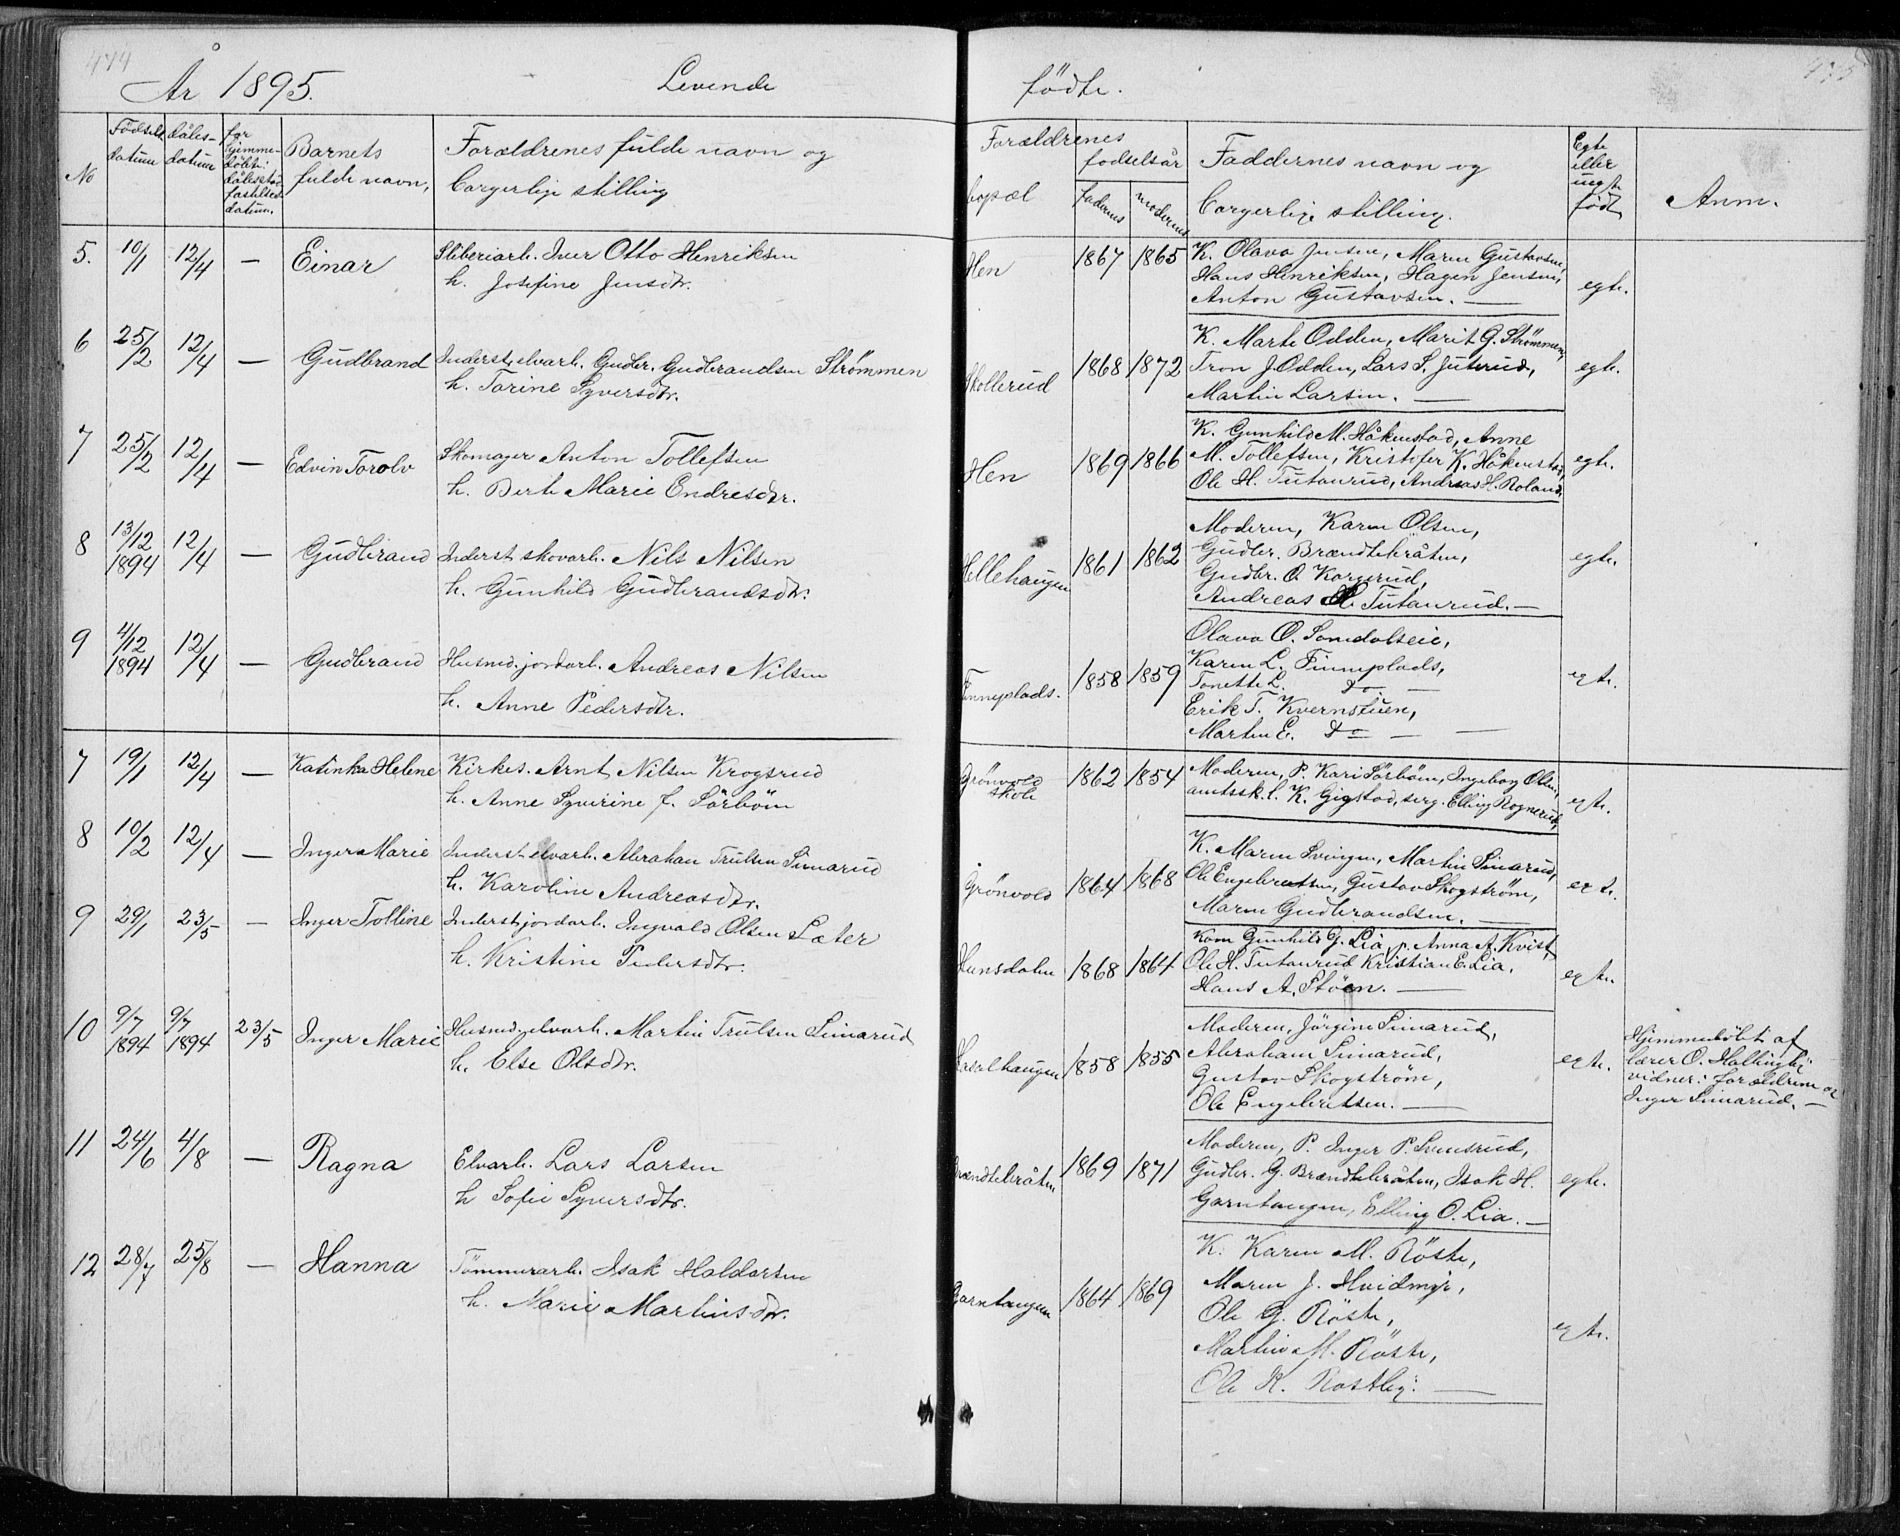 474
År 1895.
Levende
fødte.
475
No
Fødsels datum
dåbs-datum
for hjemmedøbte: dåbsstad- fæstelses datum.
Barnets fulde navn,
Forældrenes fulde navn og borgerlige stilling
Forældrenes bopæl
fødselsår
faderens
moderens
Faddernes navn og borgerlige stilling.
Egte eller uegte født
Anm.
5. 10/1 12/4 — Einar
Sliberiarb. Iver Otto Henriksen
h. Josefine Jensdtr.
Hen 1867 1865
K. Olava Jensen, Maren Gustavsen,
Hans Henriksen, Hagen Jensen,
Anton Gustavsen. —
egte.
6 25/2 12/4 — Gudbrand
Inderst, elvarb. Gudbr. Gudbrandsen Strømmen
h. Torine Syversdtr.
Skollerud 1868 1872
K. Marte Odden, Marit G. Strømmen,
Tron J. Odden, Lars S. Juterud,
Martin Larsen. —
egte.
7 25/2 12/4 — Edvin Torolv
Skomager Anton Tollefsen
h. Berte Marie Endresdtr.
Hen 1869 1866
K. Gunhild M. Håkenstad, Anne
M. Tollefsen, Kristofer K. Håkenstad,
Ole H. Tutanrud, Andreas H. Roland.
egte.
8 13/12 1894 12/4 — Gudbrand
Inderst skovarb. Nils Nilsen
h. Gunhild Gudbrandsdtr.
Hellehaugen 1861 1862
Moderen, Karen Olsen,
Gudbr. Brændtebråten,
Gudbr. O. Korgerud,
Andreas H. Tutanrud. —
egte.
9 4/12 1894 12/4 — Gudbrand
Husmd. jordarb. Andreas Nilsen
h. Anne Pedersdtr.
Finneplads. 1858 1859
Olava O. Somdalseie,
Karen L. Finneplads,
Tonette L. do —
Erik T. Kvernstuen,
Marten E. do — —
egte.
7 19/1 12/4 — Katinka Helene
Kirkes. Arnt Nilsen Krogsrud
h. Anne Syverine f. Sørbøen
Grønvold skole 1862 1854
Moderen, P. Kari Sørbøen, Ingeborg Olsen,
amtssk.l. K. Gigstad, serg. Elling Rognerud,
egte.
8 10/2 12/4 — Inger Marie
Inderst elvarb. Abraham Trulsen Simarud
h. Karoline Andreasdtr.
Grønvold 1864 1868
K. Maren Svingen, Martin Simarud,
Ole Engebretsen, Gustav Skogstrøm,
Maren Gudbrandsen. —
egte.
9 29/1 23/5 — Inger Talline
Inderst jordarb. Ingvald Olsen Sæter
h. Kristine Pedersdtr.
Hunsdalen 1868 1864
Kone Gunhild G. Lia, p. Anna A. Kvist,
Ole H. Tutanrud Kristian E. Lia,
Hans A. Støen. —
egte.
10 9/7 1894 9/7 1894 23/5 Inger Marie
Husmd. elvarb. Martin Trulsen Simarud
h. Else Olsdtr.
Haralhaugen 1858 1855
Moderen, Jørgine Simarud,
Abraham Simarud,
Gustav Skogstrøm,
Ole Engebretsen. —
egte.
Hjemmedøbt af
lærer O. Hallingby
vidner: forældrene og
Inger Simarud. —
11 24/6 4/8 — Ragna
Elvarb. Lars Larsen
h Sofie Syversdtr.
Brændtebråten 1869 1871
Moderen, P. Inger P. Svensrud,
Gudbr. G. Brændtebråten, Isak H.
Garntangen, Elling O. Lia. —
egte.
12 28/7 25/8 — Hanna
Tømmerarb. Isak Haldorsen
h. Marie Martinsdtr.
Garntangen 1864 1869
K. Karen M. Røste,
Maren J. Hvidmyr,
Ole G. Røste,
Martin M. Røste,
Ole K. Rostby: —
egte.